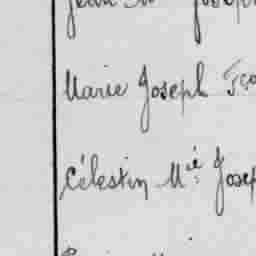 Jean M Joseph
Marie Joseph Fço
Célestin Mie: Josep